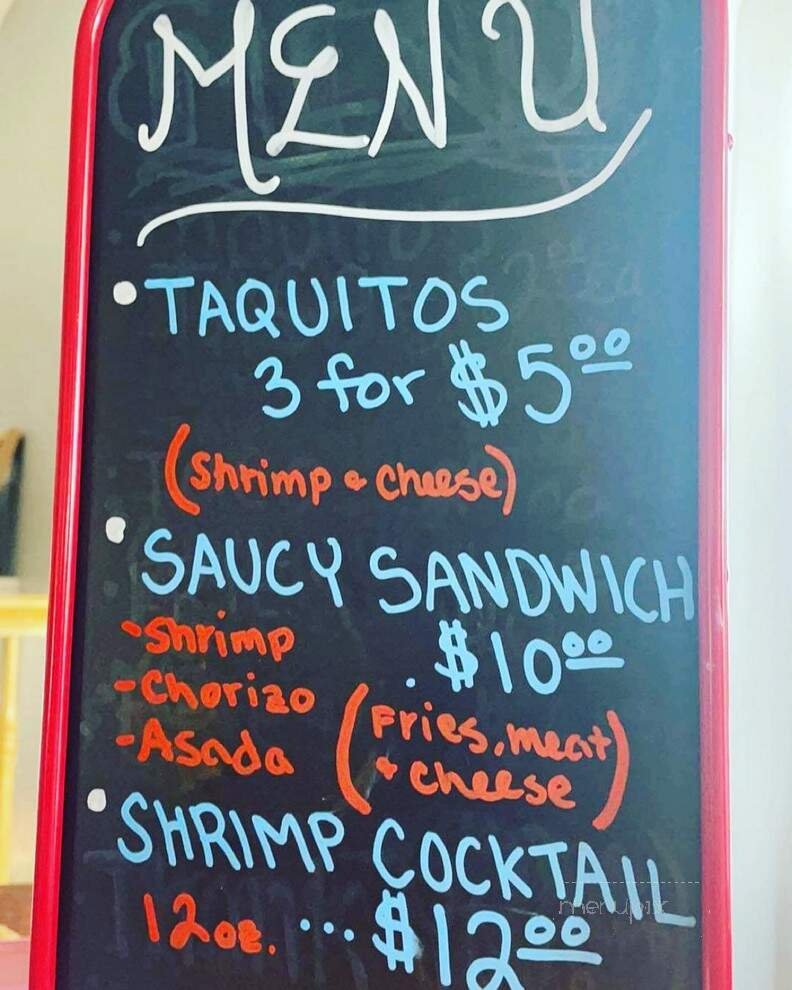 MENU
• TAQUITOS
3 for $5.00
(Shrimp & Cheese)
• SAUCY SANDWICH
- Shrimp
. $10.00
- Chorizo
- Asada
(Fries, meat
& cheese)
• SHRIMP COCKTAIL
12oz. ... $12.00
menupix